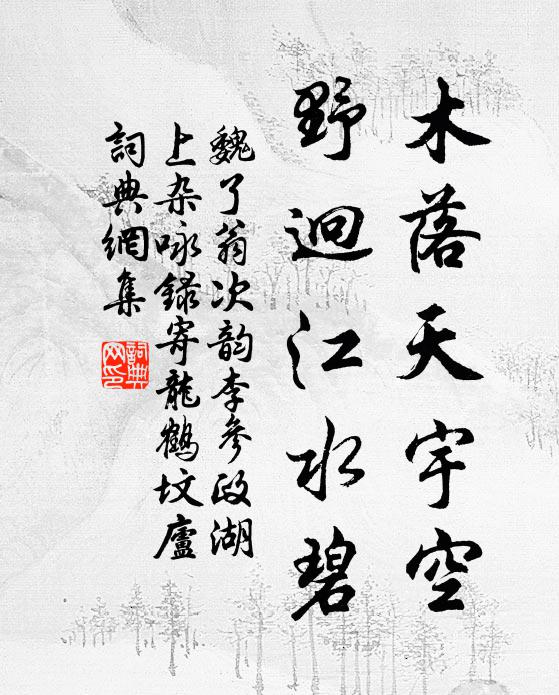 木落天宇空
野迥江水碧
魏了翁次韵李參政湖
上杂咏錄寄龍鶴坟廬
詞典網集
詞典
网印